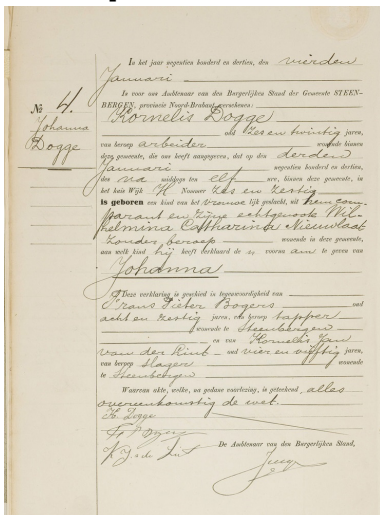 In het jaar negentien honderd en dertien, den vierden
Januari
is voor ons Ambtenaar van den Burgerlijken Stand der Gemeente STEEN-
BERGEN, provincie Noord-Brabant, verschenen:
No 4.
Johanna
Dogge
Kornelis Dogge
oud zes en twintig jaren,
van beroep arbeider wonende binnen
deze gemeente, die ons heeft aangegeven, dat op den derden
Januari negentien honderd en dertien,
des na middags ten elf ure, binnen deze gemeente, in
het huis Wijk H Nommer zes en zestig
is geboren een kind van het vrouwelijk geslacht, uit hem com-
parant en zijne echtgenoote Wil-
helmina Catharina Nieuwlaat
zonder beroep wonende in deze gemeente,
aan welk kind hij heeft verklaard de voornaam te geven van
Johanna
Deze verklaring is geschied in tegenwoordigheid van
Frans Pieter Bogers oud
acht en zestig jaren, van beroep tapper
wonende te Steenbergen
en van Kornelis Jan
van der Lint oud vier en vijftig jaren,
van beroep slager wonende
te Steenbergen
Waarvan akte, welke, na gedane voorlezing, is geteekend, alles
overeenkomstig de wet.
K. Dogge
De Ambtenaar van den Burgerlijken Stand,